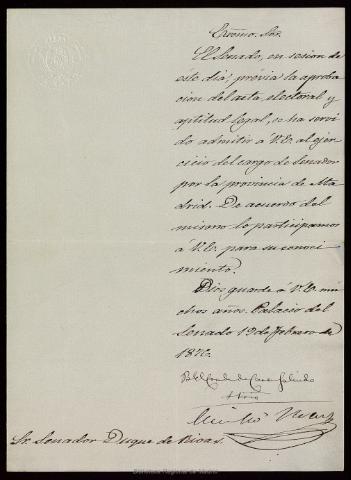 Excmo. Sor.
El Senado, en sesion de
este dia, prévia la aproba
cion del acta electoral y
aptitud legal, se ha servi
do admitir á V.E. al ejer
cicio del cargo de Senador
por la provincia de Ma
drid. De acuerdo del
mismo lo participamos
á V.E. para su conoci
miento.
Dios guarde á V.E. mu
chos años. Palacio del
Senado 19 de febrero de
1876.
Conde de Casa Galindo
Sr. Senador Duque de Rivas.